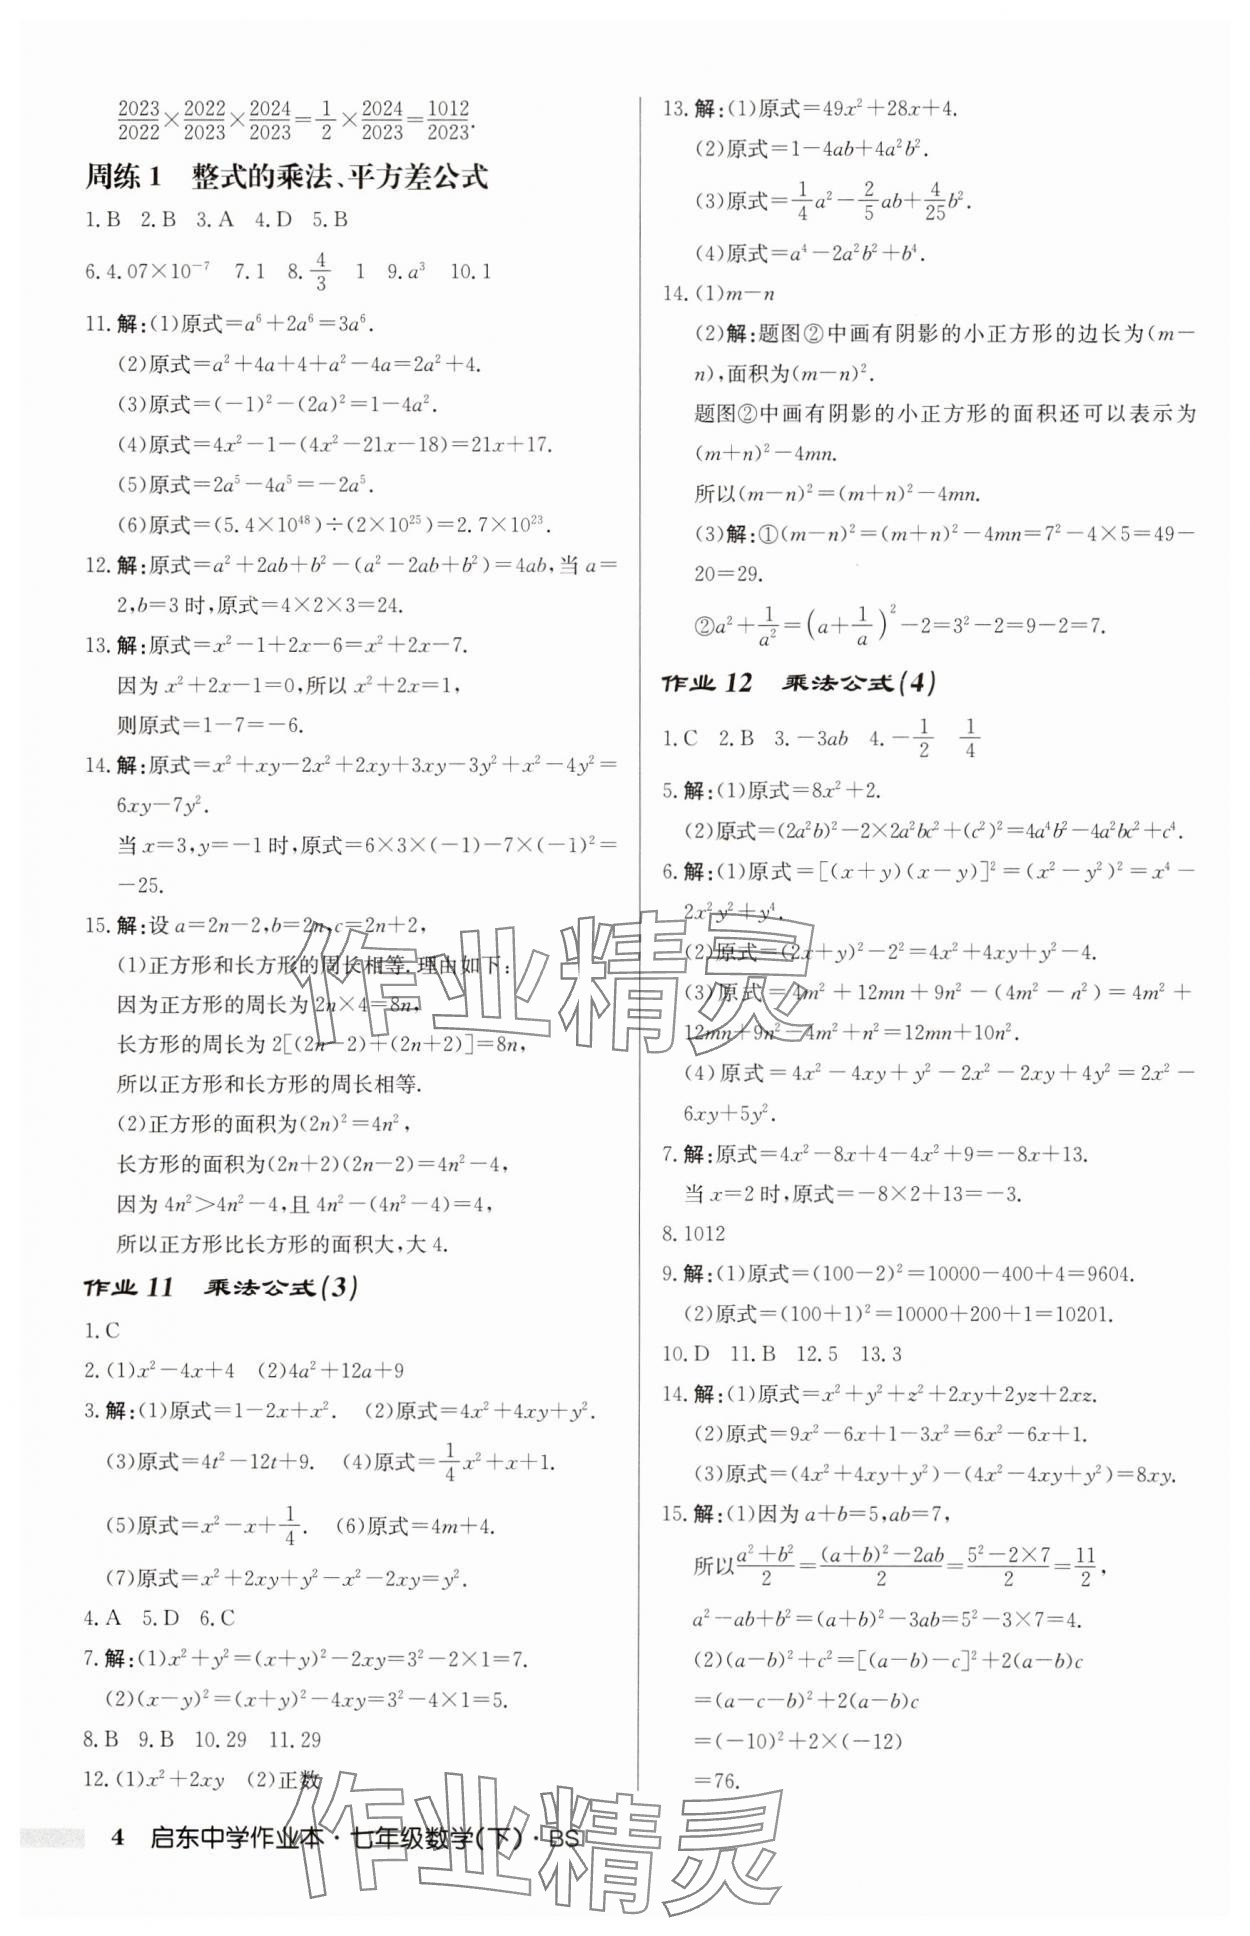 2023/2022×2022/2023×2024/2023=1/2×2024/2023=1012/2023.
周练1 整式的乘法、平方差公式
1.B 2.B 3.A 4.D 5.B
6.4.07×10⁻⁷ 7.1 8.4/3 1 9.a³ 10.1
11.解:(1)原式=a⁶+2a⁶=3a⁶.
(2)原式=a²+4a+4+a²-4a=2a²+4.
(3)原式=(-1)²-(2a)²=1-4a².
(4)原式=4x²-1-(4x²-21x-18)=21x+17.
(5)原式=2a⁵-4a⁵=-2a⁵.
(6)原式=(5.4×10⁴⁸)÷(2×10²⁵)=2.7×10²³.
12.解:原式=a²+2ab+b²-(a²-2ab+b²)=4ab,当a=
2,b=3时,原式=4×2×3=24.
13.解:原式=x²-1+2x-6=x²+2x-7.
因为x²+2x-1=0,所以x²+2x=1,
则原式=1-7=-6.
14.解:原式=x²+xy-2x²+2xy+3xy-3y²+x²-4y²=
6xy-7y².
当x=3,y=-1时,原式=6×3×(-1)-7×(-1)²=
-25.
15.解:设a=2n-2,b=2n,c=2n+2,
(1)正方形和长方形的周长相等.理由如下:
因为正方形的周长为2n×4=8n,
长方形的周长为2[(2n-2)+(2n+2)]=8n,
所以正方形和长方形的周长相等.
(2)正方形的面积为(2n)²=4n²,
长方形的面积为(2n+2)(2n-2)=4n²-4,
因为4n²>4n²-4,且4n²-(4n²-4)=4,
所以正方形比长方形的面积大,大4.
作业11 乘法公式(3)
1.C
2.(1)x²-4x+4 (2)4a²+12a+9
3.解:(1)原式=1-2x+x². (2)原式=4x²+4xy+y².
(3)原式=4t²-12t+9. (4)原式=1/4x²+x+1.
(5)原式=x²-x+1/4. (6)原式=4m+4.
(7)原式=x²+2xy+y²-x²-2xy=y².
4.A 5.D 6.C
7.解:(1)x²+y²=(x+y)²-2xy=3²-2×1=7.
(2)(x-y)²=(x+y)²-4xy=3²-4×1=5.
8.B 9.B 10.29 11.29
12.(1)x²+2xy (2)正数
13.解:(1)原式=49x²+28x+4.
(2)原式=1-4ab+4a²b².
(3)原式=1/4a²-2/5ab+4/25b².
(4)原式=a⁴-2a²b²+b⁴.
14.(1)m-n
(2)解:题图②中画有阴影的小正方形的边长为(m-
n),面积为(m-n)².
题图②中画有阴影的小正方形的面积还可以表示为
(m+n)²-4mn.
所以(m-n)²=(m+n)²-4mn.
(3)解:①(m-n)²=(m+n)²-4mn=7²-4×5=49-
20=29.
②a²+1/a²=(a+1/a)²-2=3²-2=9-2=7.
作业12 乘法公式(4)
1.C 2.B 3.-3ab 4.-1/2 1/4
5.解:(1)原式=8x²+2.
(2)原式=(2a²b)²-2×2a²bc²+(c²)²=4a⁴b²-4a²bc²+c⁴.
6.解:(1)原式=[(x+y)(x-y)]²=(x²-y²)²=x⁴-
2x²y²+y⁴.
(2)原式=(2x+y)²-2²=4x²+4xy+y²-4.
(3)原式=4m²+12mn+9n²-(4m²-n²)=4m²+
12mn+9n²-4m²+n²=12mn+10n².
(4)原式=4x²-4xy+y²-2x²-2xy+4y²=2x²-
6xy+5y².
7.解:原式=4x²-8x+4-4x²+9=-8x+13.
当x=2时,原式=-8×2+13=-3.
8.1012
9.解:(1)原式=(100-2)²=10000-400+4=9604.
(2)原式=(100+1)²=10000+200+1=10201.
10.D 11.B 12.5 13.3
14.解:(1)原式=x²+y²+z²+2xy+2yz+2xz.
(2)原式=9x²-6x+1-3x²=6x²-6x+1.
(3)原式=(4x²+4xy+y²)-(4x²-4xy+y²)=8xy.
15.解:(1)因为a+b=5,ab=7,
所以(a²+b²)/2=((a+b)²-2ab)/2=(5²-2×7)/2=11/2,
a²-ab+b²=(a+b)²-3ab=5²-3×7=4.
(2)(a-b)²+c²=[(a-b)-c]²+2(a-b)c
=(a-c-b)²+2(a-b)c
=(-10)²+2×(-12)
=76.
作业精灵
作业精灵
4 启东中学作业本·七年级数学(下)·BS